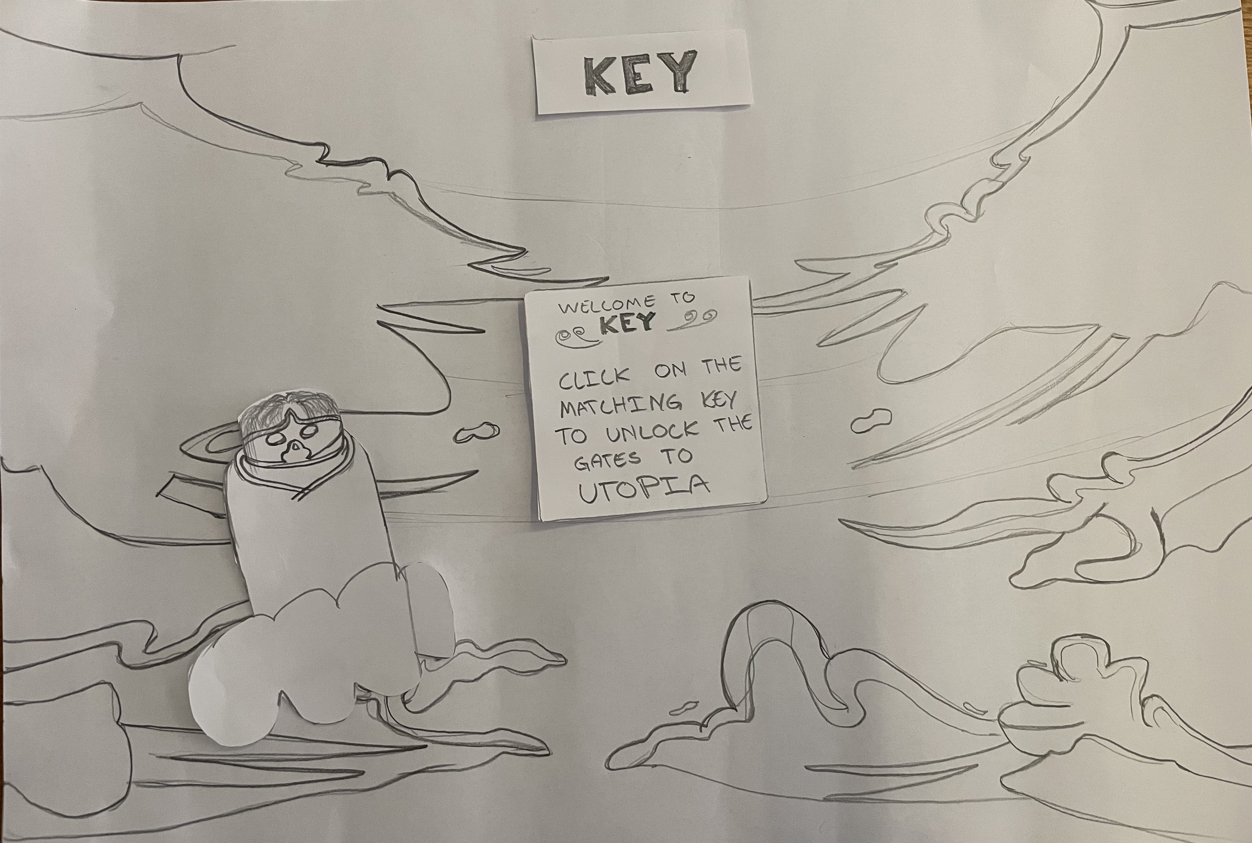 KEY
WELCOME TO
KEY
CLICK ON THE
MATCHING KEY
TO UNLOCK THE
GATES TO
UTOPIA